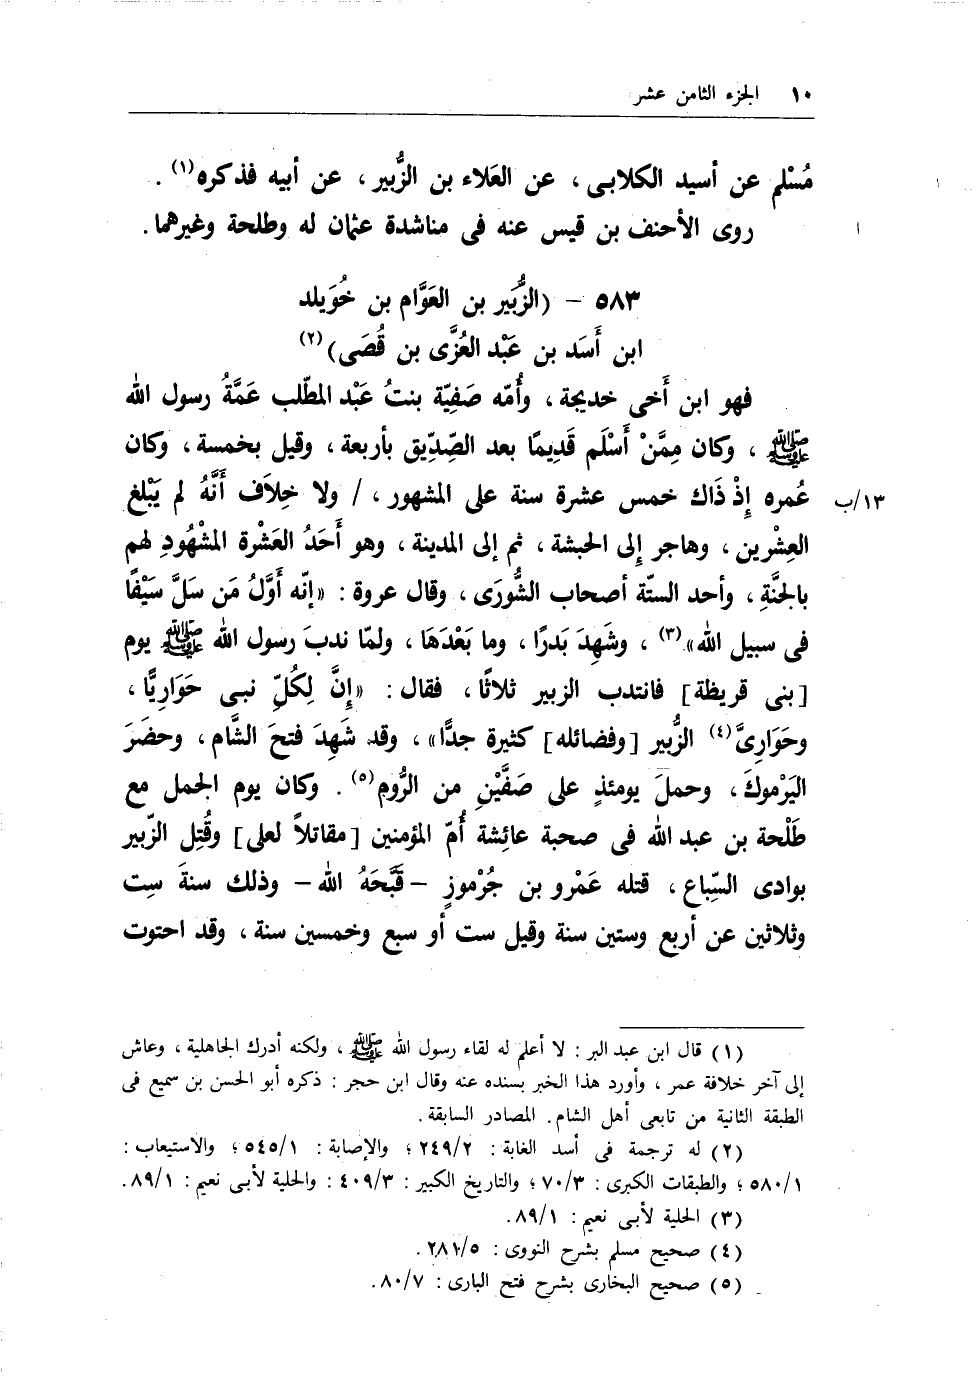 ١٠ الجزء الثامن عشر
مُسْلم عن أسيد الكلابى ، عن العَلاء بن الزُّبير ، عن أبيه فذكره(١) .
روى الأحنف بن قيس عنه فى مناشدة عثمان له وطلحة وغيرهما .
٥٨٣ – (الزُّبَير بن العَوَّام بن خُوَيلد
ابن أَسَد بن عَبْد العُزَّى بن قُصَى)(٢)
فهو ابن أَخى خديجة ، وأُمّه صَفِيّة بنتُ عَبْد المطّلب عَمَّةُ رسول الله
ﷺ ، وكان مِمَّنْ أَسْلَم قَديمًا بعد الصِّدِّيق بأربعة ، وقيل بخمسة ، وكان
عُمره إِذْ ذَاك خمس عشرة سنة على المشهور ، / ولا خِلاَف أَنَّهُ لم يَبْلغ ١٣/ب
العِشْرين ، وهاجر إلى الحبشة ، ثم إلى المدينة ، وهو أَحَدُ العَشْرة المشْهُودِ لهم
بالجنَّةِ ، وأحد الستّة أصحاب الشُّورَى ، وقال عروة : «إنّه أوَّلُ مَن سَلَّ سَيْفًا
فى سبيل الله»(٣) ، وشَهِدَ بَدرًا ، وما بَعْدَهَا ، ولمّا ندبَ رسول الله ﷺ يوم
[بنى قريظة] فانتدب الزبير ثلاثًا ، فقال : «إِنَّ لِكُلِّ نبى حَوَارِيًّا ،
وحَوَارِىَّ(٤) الزُّبير [وفضائله] كثيرة جدًّا» ، وقد شَهِدَ فتحَ الشَّام ، وحضَرَ
اليَرْموكَ ، وحملَ يومئذٍ على صَفَّيْنِ من الرُّوم(٥) . وكان يوم الجمل مع
طَلْحة بن عبد الله فى صحبة عائِشة أُمّ المؤمنين [مقاتلاً لعلى] وقُتِل الزّبير
بوادى السِّباع ، قتله عَمْرو بن جُرْموزٍ –قَبَّحَهُ الله– وذلك سنةَ سِت
وثلاثين عن أربع وستين سنة وقيل ست أو سبع وخمسين سنة ، وقد احتوت
(١) قال ابن عبد البر : لا أعلم له لقاء رسول الله ﷺ ، ولكنه أدرك الجاهلية ، وعاش
إلى آخر خلافة عمر ، وأورد هذا الخبر بسنده عنه وقال ابن حجر : ذكره أبو الحسن بن سميع فى
الطبقة الثانية من تابعى أهل الشام . المصادر السابقة .
(٢) له ترجمة فى أسد الغابة : ٢٤٩/٢ ؛ والإصابة : ٥٤٥/١ ؛ والاستيعاب :
٥٨٠/١ ؛ والطبقات الكبرى : ٧٠/٣ ؛ والتاريخ الكبير : ٤٠٩/٣ : والحلية لأبى نعيم : ٨٩/١ .
(٣) الحلية لأبى نعيم : ٨٩/١ .
(٤) صحيح مسلم بشرح النووى : ٢٨١/٥ .
(٥) صحيح البخارى بشرح فتح البارى : ٨٠/٧ .